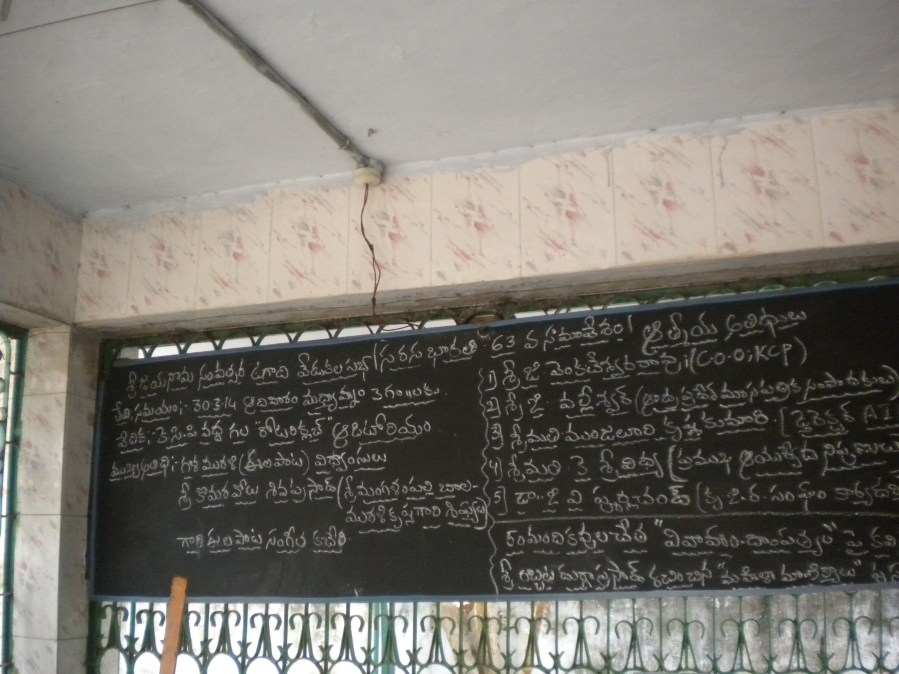 శ్రీ జయనామ సంవత్సర ఉగాది వేడుకల సభ / సరస భారతి 63 వ సమావేశం!
తేది, సమయం:- 30-3-14 ఆదివారం మధ్యాహ్నం 3 గంటలకు
వేదిక:- కె.సి.పి వద్ద గల "రోటరీక్లబ్" ఆడిటోరియం
ముఖ్య అతిథి:- గాన మురళి (ఈల పాట) విద్వాంసులు
శ్రీ కొమరవోలు శివప్రసాద్ (శ్రీ మంగళంపల్లి బాల-
మురళీకృష్ణగారి శిష్యులు)
గారి ఈలపాట సంగీత కచేరీ
ఆత్మీయ అతిథులు
1) శ్రీ జి వెంకటేశ్వరరావు (C.O.O; KCP)
2) శ్రీ వల్లీశ్వర్ (ఆంధ్రప్రదేశ్ మాసపత్రిక సంపాదకులు)
3) శ్రీమతి ముంజులూరి కృష్ణకుమారి (డైరెక్టర్ A I
4) శ్రీమతి కె శ్రీవిద్య (ప్రముఖ ఆయుర్వేద నిపుణులు
5) డా. జి వి పూర్ణచంద్ (కృ.జి.ర. సంఘం కార్యదర్శి
కొందరి కవుల చేత "వివాహం-దాంపత్యం" పై కవి
శ్రీ గబ్బిట దుర్గాప్రసాద్ రచించిన "మహిళా మాణిక్యాలు"